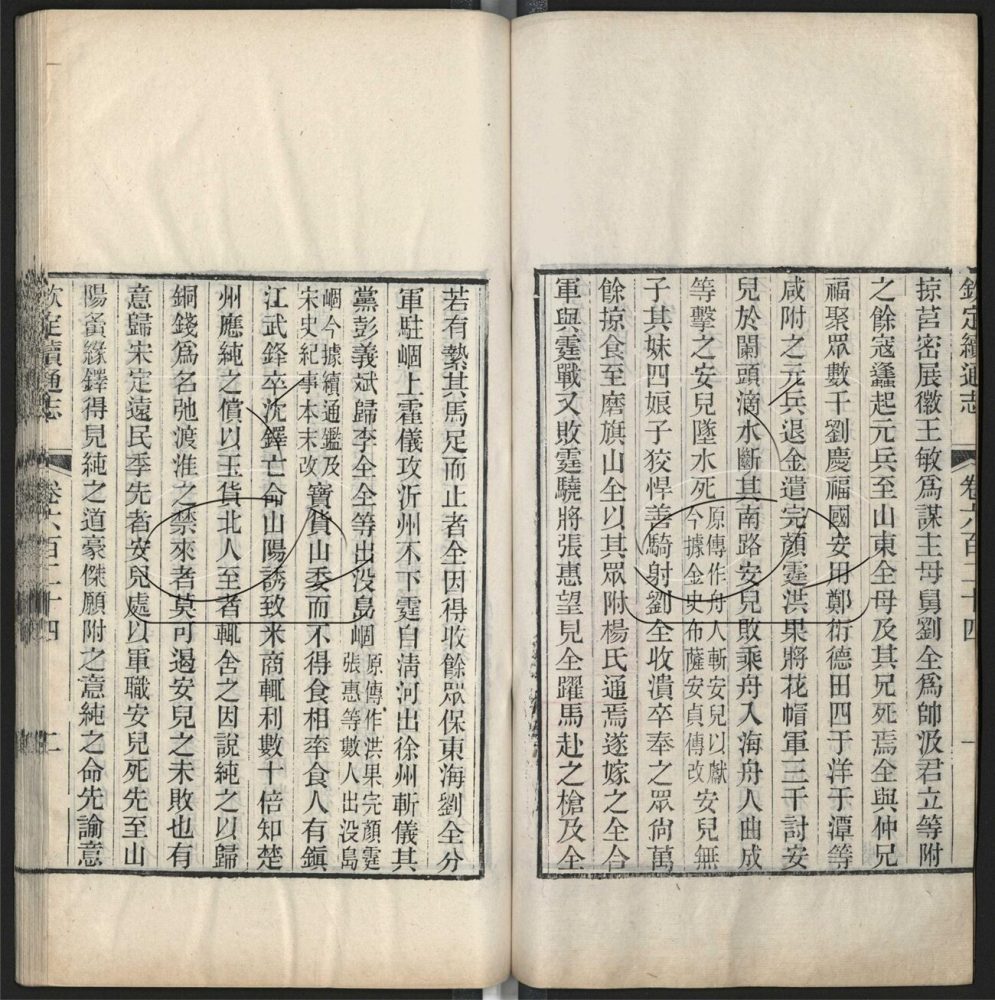 欽定續通志 卷六百二十四 一
掠莒密展徽王敏爲謀主母舅劉全爲帥汲君立等附
之餘寇蠭起元兵至山東全母及其兄死焉全與仲兄
福聚眾數千劉慶福國安用鄭衍德田四于洋于潭等
咸附之元兵退金遣完顏霆洪果將花帽軍三千討安
兒於闌頭滴水斷其南路安兒敗乘舟入海舟人曲成
等擊之安兒墜水死
原傳作舟人斬安兒以獻
今據金史布薩安貞傳改
安兒無
子其妹四娘子狡悍善騎射劉全收潰卒奉之眾尙萬
餘掠食至磨旗山全以其眾附楊氏通焉遂嫁之全合
軍與霆戰又敗霆驍將張惠望見全躍馬赴之槍及全
若有縶其馬足而止者全因得收餘眾保東海劉全分
軍駐崮上霍儀攻沂州不下霆自清河出徐州斬儀其
黨彭義斌歸李全全等出没島崮
原傳作洪果完顏霆
張惠等數人出没島
崮今據續通鑑及
宋史紀事本末改
寳貨山委而不得食相率食人有鎭
江武鋒卒沈鐸亡命山陽誘致米商輒利數十倍知楚
州應純之償以玉貨北人至者輒舍之因說純之以歸
銅錢爲名弛渡淮之禁來者莫可遏安兒之未敗也有
意歸宋定遠民季先者安兒處以軍職安兒死先至山
陽夤緣鐸得見純之道豪傑願附之意純之命先諭意
欽定續通志 卷六百二十四 二